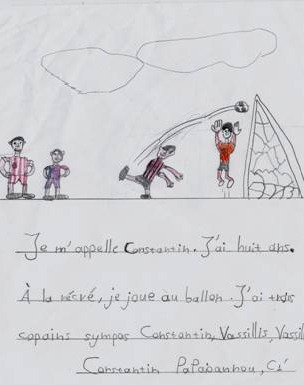 Je m'appelle Constantin. J'ai huit ans.
À la récré, je joue au ballon. J'ai trois
copains sympas Constantin, Vassillis, Vassil
Constantin Papaioannou, C1'